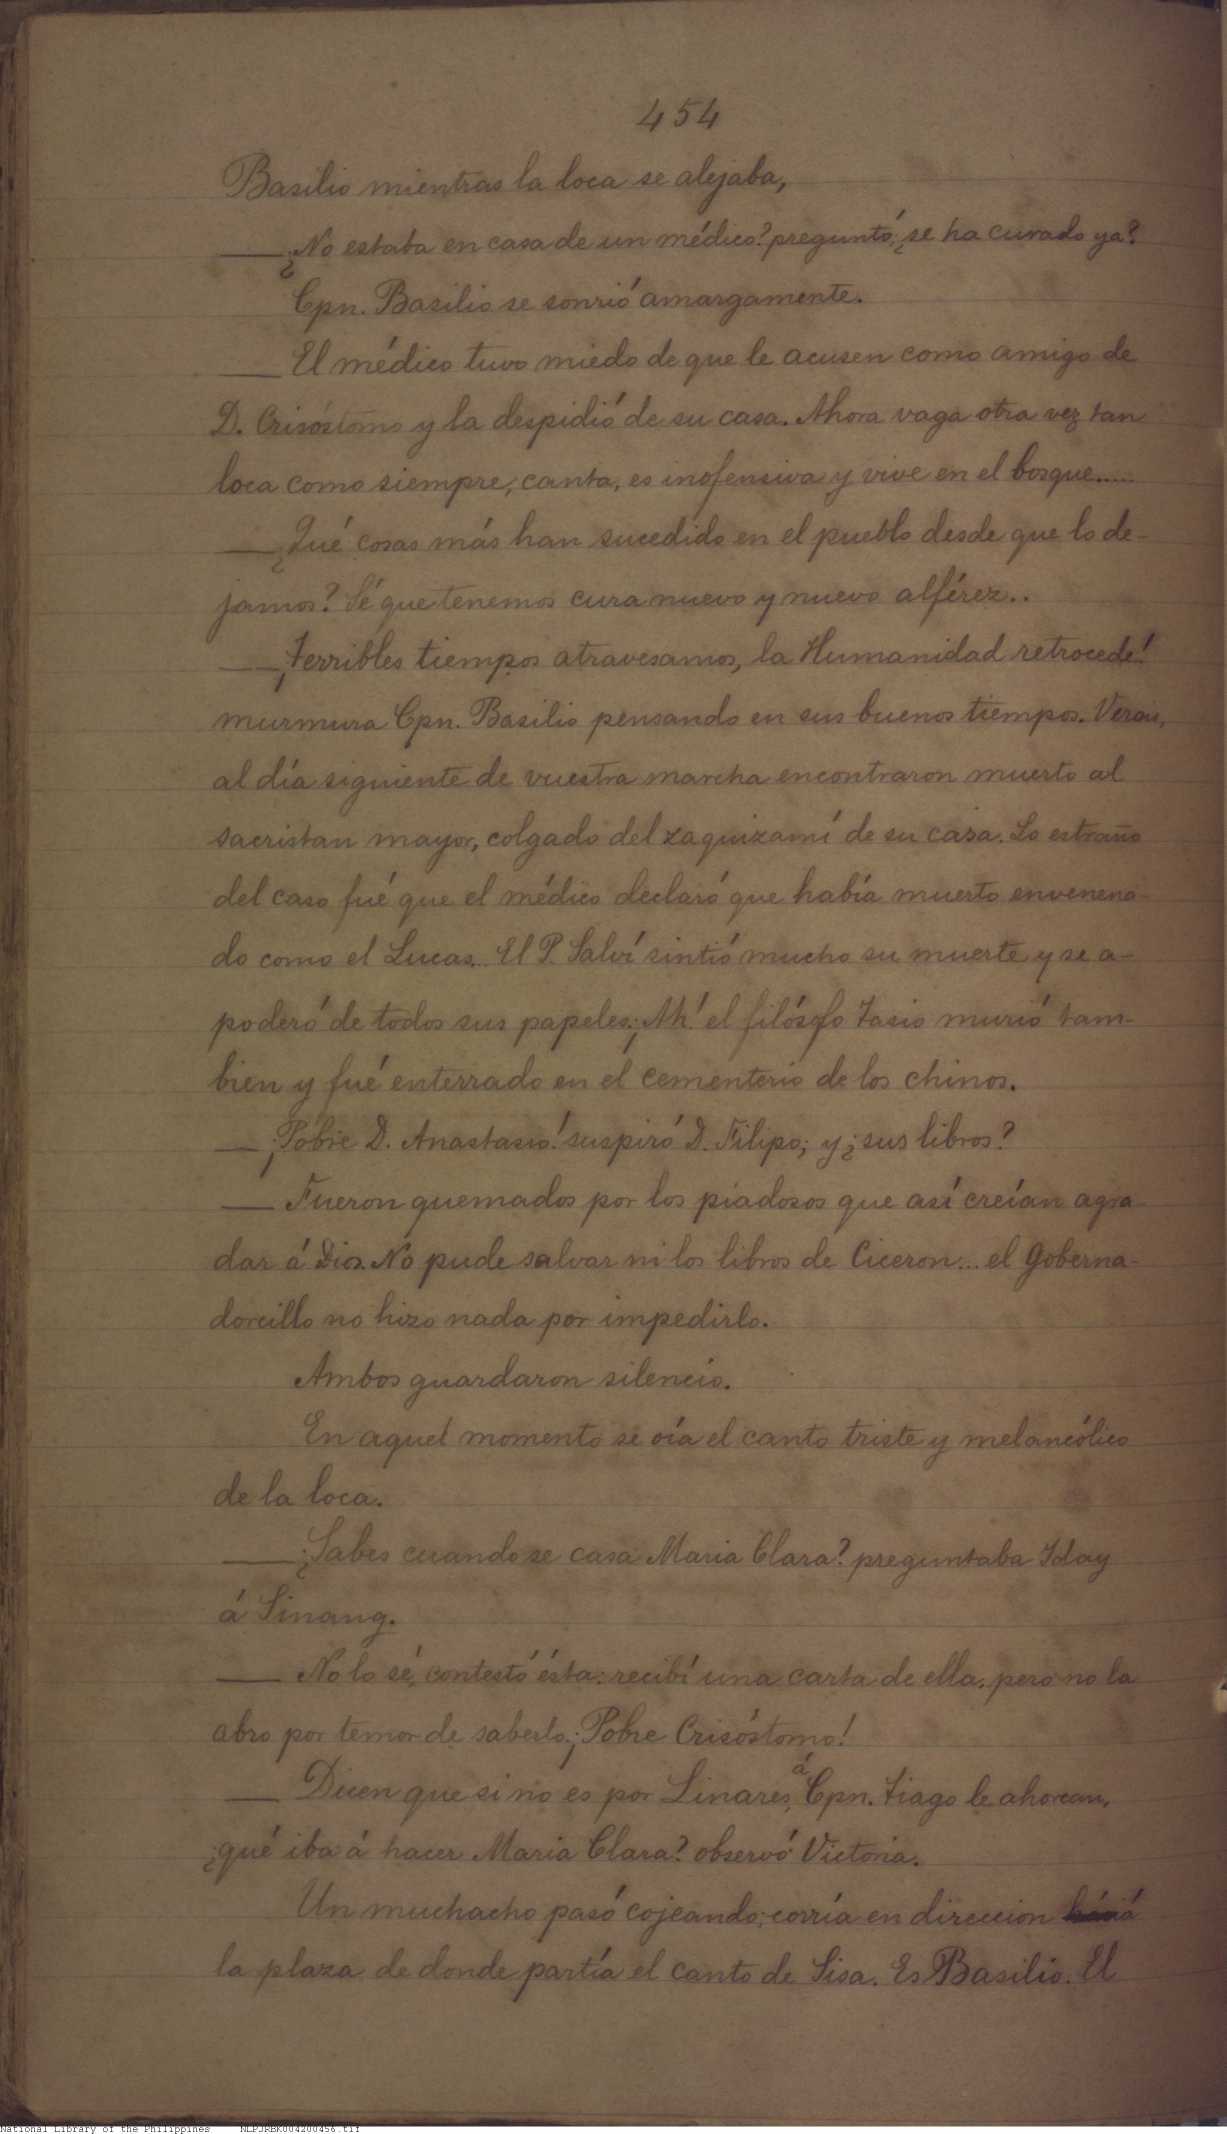 454
Basilio mientras la loca se alejaba,
— ¿No estaba en casa de un médico? preguntó; ¿se ha curado ya?
Cpn. Basilio se sonrió amargamente.
— El médico tuvo miedo de que le acusen como amigo de
D. Crisóstomo y la despidió de su casa. Ahora vaga otra vez tan
loca como siempre, canta, es inofensiva y vive en el bosque.....
— ¿Qué cosas más han sucedido en el pueblo desde que lo de-
jamos? Sé que tenemos cura nuevo y nuevo alférez..
— ¡Terribles tiempos atravesamos, la Humanidad retrocede!
murmura Cpn. Basilio pensando en sus buenos tiempos. Verán,
al día siguiente de vuestra marcha encontraron muerto al
sacristan mayor, colgado del zaquizamí de su casa. Lo estraño
del caso fué que el médico declaró que había muerto envenena-
do como el Lucas... El P. Salví sintió mucho su muerte y se a-
poderó de todos sus papeles. ¡Ah! el filósofo Tasio murió tam-
bien y fué enterrado en el cementerio de los chinos.
— ¡Pobre D. Anastasio! suspiró D. Filipo; y ¿sus libros?
— Fueron quemados por los piadosos que así creían agra-
dar á Dios. No pude salvar ni los libros de Ciceron... el Goberna-
dorcillo no hizo nada por impedirlo.
Ambos guardaron silencio.
En aquel momento se oía el canto triste y melancólico
de la loca.
— ¿Sabes cuando se casa Maria Clara? preguntaba Iday
á Sinang.
— No lo sé, contestó ésta: recibí una carta de ella, pero no la
abro por temor de saberlo. ¡Pobre Crisóstomo!
— Dicen que si no es por Linares, á Cpn. Tiago le ahorcan,
¿qué iba á hacer Maria Clara? observó Victoria.
Un muchacho pasó cojeando; corría en direccion á
la plaza de donde partía el canto de Sisa. Es Basilio. El
National Library of the Philippines NLPJRBK004200456.tif